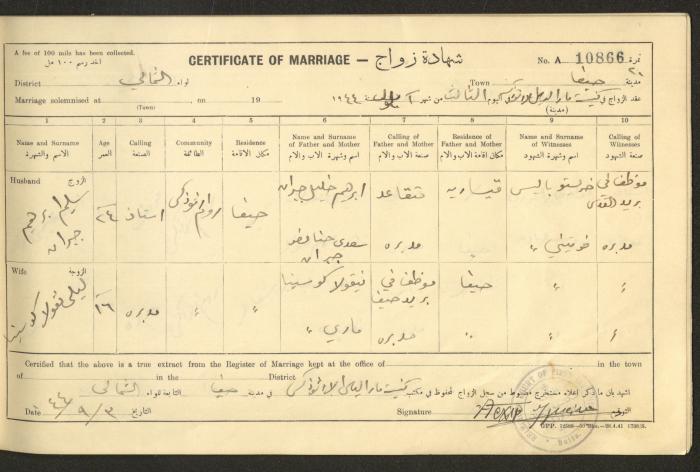 A fee of 100 mils has been collected.
أخذ رسم ١٠٠ مل
CERTIFICATE OF MARRIAGE — شهادة زواج
No. A 10866 نمرة
District لواء الشمالي
Town حيفا مدينة
Marriage solemnised at , on 19
(Town)
عقد الزواج في كنيست مار الياس اليوم الثالث من شهر سنة ١٩٤٤
(مدينة)
1 2 3 4 5 6 7 8 9 10
Name and Surname الاسم والشهرة
Age العمر
Calling الصنعة
Community الطائفة
Residence مكان الاقامة
Name and Surname of Father and Mother اسم وشهرة الاب والام
Calling of Father and Mother صنعة الاب والام
Residence of Father and Mother مكان اقامة الاب والام
Name and Surname of Witnesses اسم وشهرة الشهود
Calling of Witnesses صنعة الشهود
Husband الزوج
سليم ابرهيم جبران
٢٤
استاذ
روم ارثوذكس
حيفا
ابرهيم خليل جبران
متقاعد
قيساريه
خريستو باليس
موظف في بريد القدس
سعدى حنا
جبران
مدبره
"
مدبره
Wife الزوجة
ليلى نقولا كوسينا
١٦
مدبره
"
"
نيقولا كوسينا
موظف في بريد حيفا
حيفا
"
"
ماري "
مدبره
"
"
Certified that the above is a true extract from the Register of Marriage kept at the office of in the town
of in the District
اشهد بان ما ذكر اعلاه مستخرج مضبوط من سجل الزواج المحفوظ في مكتب كنيست مار الياس الارثوذكس في مدينة حيفا التابعة للواء الشمالي
Date ٣/٩/٤٤ التاريخ
Signature التوقيع